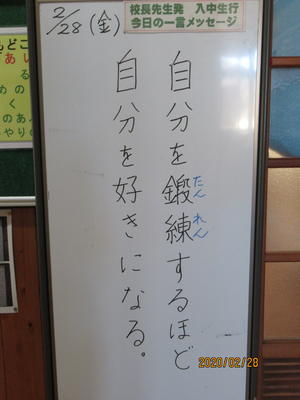 2/28(金)
校長先生発 入中生行
今日の一言メッセージ
自分を鍛練するほど
たん れん
自分を好きになる。
2020/02/28